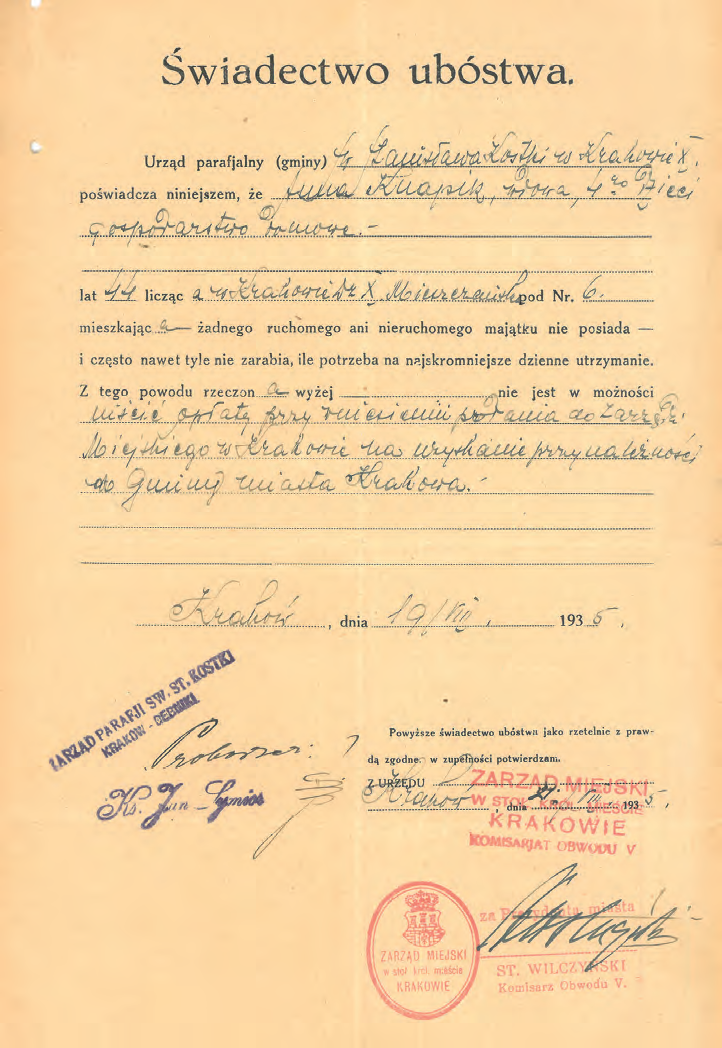 Świadectwo ubóstwa.
Urząd parafjalny (gminy) św Stanisława Kostki w Krakowie X.
poświadcza niniejszem, że Anna Knapik, wdowa, 4 ro dzieci
gospodarstwo domowe.-
lat 44 licząc a w Krakowie Dz X, Mieszczańska pod Nr. 6.
mieszkając a żadnego ruchomego ani nieruchomego majątku nie posiada —
i często nawet tyle nie zarabia, ile potrzeba na najskromniejsze dzienne utrzymanie.
Z tego powodu rzeczon a wyżej nie jest w możności
uiścić opłaty przy wniesieniu podania do Zarządu
Miejskiego w Krakowie na uzyskanie przynależności
do Gminy miasta Krakowa.-
Kraków, dnia 19/VII. 1935.
ZARZĄD PARAFJI ŚW. ST. KOSTKI
KRAKÓW - DĘBNIKI
Proboszcz:
Ks. Jan
Powyższe świadectwo ubóstwa jako rzetelnie z praw-
dą zgodne, w zupełności potwierdzam.
Z URZĘDU
Kraków, dnia VII. 1935.
ZARZĄD MIEJSKI
W STOŁ. KRÓL. MIEŚCIE
KRAKOWIE
KOMISARJAT OBWODU V
za Prezydenta miasta
ST. WILCZYŃSKI
Komisarz Obwodu V.
ZARZĄD MIEJSKI
w stoł. król. mieście
KRAKOWIE